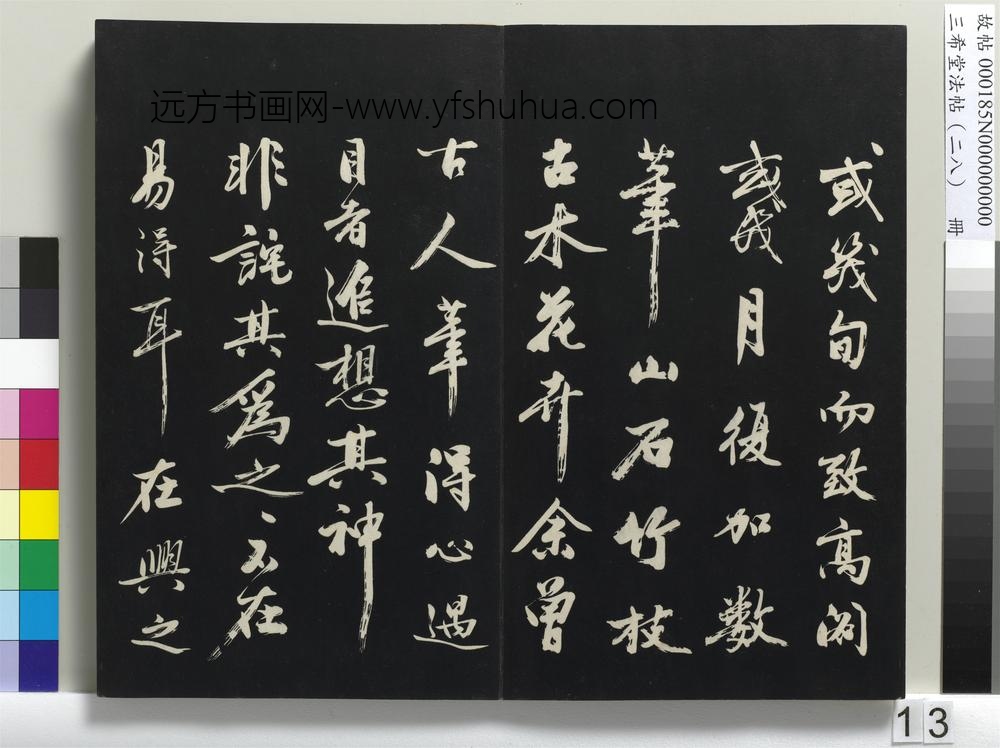 远方书画网-www.yfshuhua.com
或幾旬而致高閣
或幾月復加數
筆山石竹枝
古木花卉余曾
古人筆得心遇
目者追想其神
非詫其為之〻不在
易得耳在興之
故帖 000185N000000000
三希堂法帖（二八） 冊
13